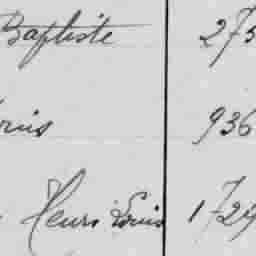 Baptiste 275
ouis 936
Henri Louis 1729